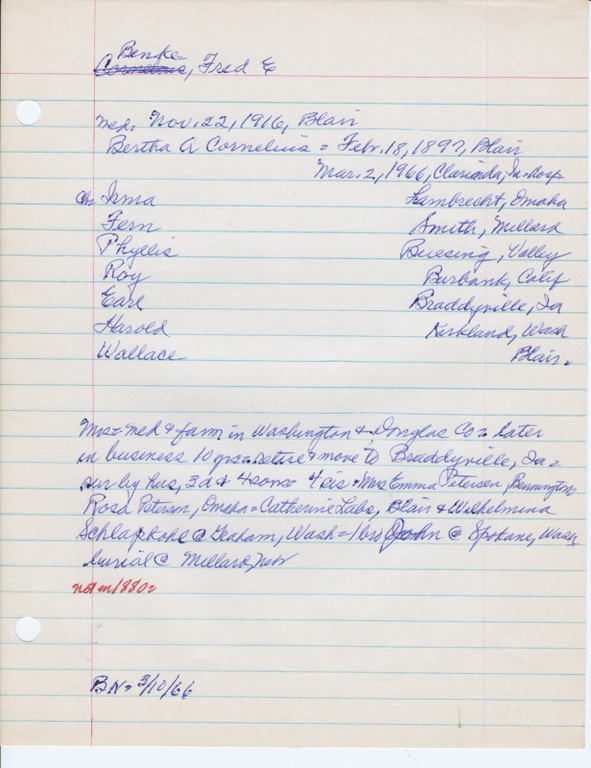 Benke
Cornelius, Fred E
Med. Nov. 22, 1916, Blair
Bertha A Cornelius = Febr. 18, 1897, Blair
Mar. 2, 1966, Clarinda, Ia-hosp
Ch= Irma Lambrecht, Omaha
Fern Smith, Millard
Phyllis Buesing, Valley
Roy Burbank, Calif
Earl Braddyville, Ia
Harold Kirkland, Wash
Wallace Blair.
Mos= med & farm in Washington & Douglas Co= later
in business 10 yrs= retire & move to Braddyville, Ia=
sur by hus, 3d & 4sons 4 sis= Mrs Emma Petersen, Bennington
Rosa Peterson, Omaha= Catherine Labs, Blair & Wilhelmina
Schlapkohl @ Graham, Wash= 1 bro John @ Spokane, Wash
burial @ Millard, Nebr
not on 1880=
BN= 3/10/66